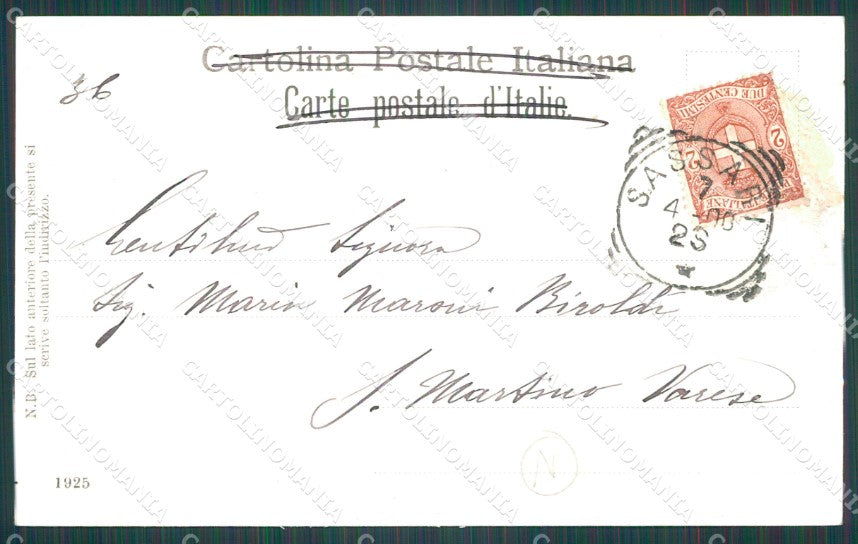 Cartolina Postale Italiana
Carte postale d'Italie.
36
DUE CENTESIMI
2 2
POSTE ITALIANE
SASSARI
7
4 - 00
2S
Gentilma Signora
Sig. Maria Maroni Biroldi
S. Martino Varese
N.B. Sul lato anteriore della presente si
scrive soltanto l'indirizzo.
1925
N
CARTOLINOMANIA